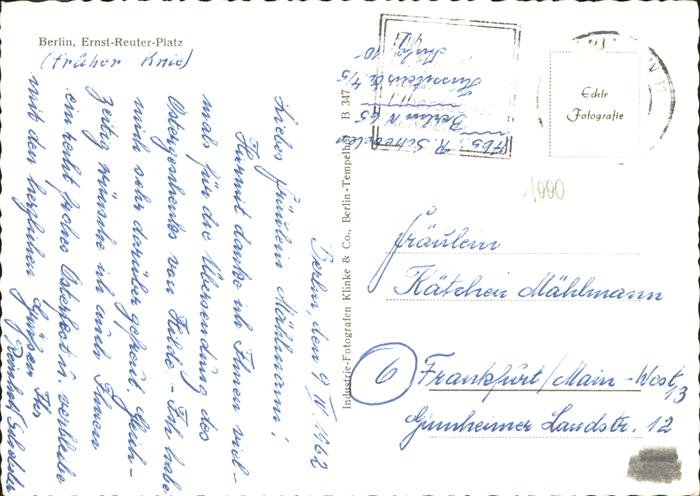 Berlin, Ernst-Reuter-Platz
(früher Knie)
Berlin, den 9. IV. 1962
Liebes Fräulein Mählmann!
Hiermit danke ich Ihnen viel-
mals für die Übersendung des
Ostergeschenkes von Hilde. - Ich habe
mich sehr darüber gefreut. Gleich-
zeitig wünsche ich auch Ihnen
ein recht frohes Osterfest u. verbleibe
mit den herzlichen Grüßen Ihr
Industrie-Fotografen Klinke & Co., Berlin-Tempelhof B 347
Abs.: R.
Berlin N 65
Echte
Fotografie
1000
Fräulein
Kätchen Mählmann
6 Frankfurt/Main-West 13
Ginnheimer Landstr. 12